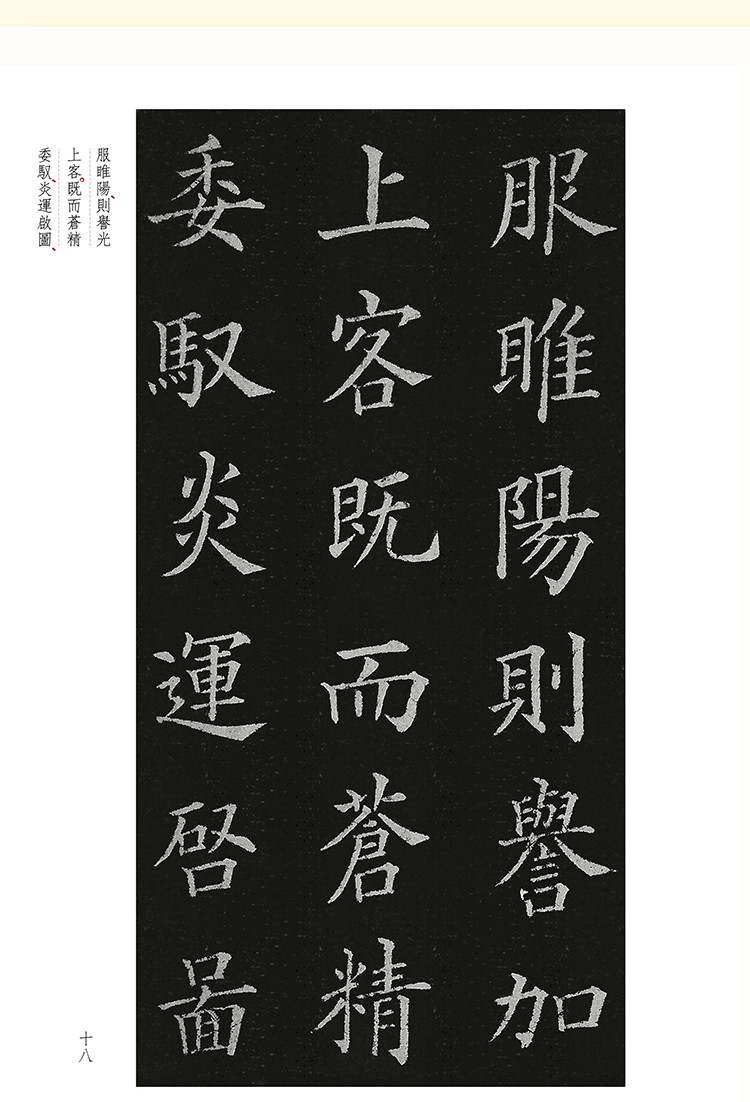 服睢陽則譽加
上客既而蒼精
委馭炎運啓啚
服睢陽、則譽光
上客。既而蒼精
委馭、炎運啟圖、
十八